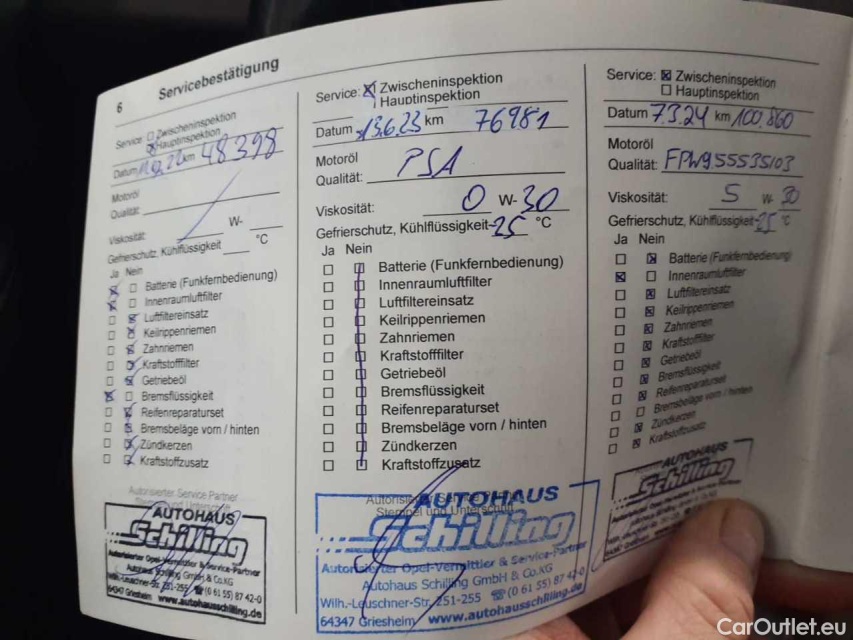 6 Servicebestätigung
Service: Zwischeninspektion
Hauptinspektion
Datum km 48398
Motoröl
Qualität:
Viskosität: W-
Gefrierschutz, Kühlflüssigkeit °C
Ja Nein
Batterie (Funkfernbedienung)
Innenraumluftfilter
Luftfiltereinsatz
Keilrippenriemen
Zahnriemen
Kraftstofffilter
Getriebeöl
Bremsflüssigkeit
Reifenreparaturset
Bremsbeläge vorn / hinten
Zündkerzen
Kraftstoffzusatz
Autorisierter Service Partner
Stempel und Unterschrift
AUTOHAUS
Schilling
Autorisierter Opel-Vermittler & Service-Partner
Autohaus Schilling GmbH & Co.KG
Wilh.-Leuschner-Str. 251-255 ☎ (0 61 55) 87 42-0
64347 Griesheim www.autohausschilling.de
Service: Zwischeninspektion
Hauptinspektion
Datum 13.6.23 km 76981
Motoröl
Qualität: PSA
Viskosität: 0 W-30
Gefrierschutz, Kühlflüssigkeit -25 °C
Ja Nein
Batterie (Funkfernbedienung)
Innenraumluftfilter
Luftfiltereinsatz
Keilrippenriemen
Zahnriemen
Kraftstofffilter
Getriebeöl
Bremsflüssigkeit
Reifenreparaturset
Bremsbeläge vorn / hinten
Zündkerzen
Kraftstoffzusatz
Autorisierter Service
Stempel und Unterschrift
AUTOHAUS
Schilling
Autorisierter Opel-Vermittler & Service-Partner
Autohaus Schilling GmbH & Co.KG
Wilh.-Leuschner-Str. 251-255 ☎ (0 61 55) 87 42-0
64347 Griesheim www.autohausschilling.de
Service: Zwischeninspektion
Hauptinspektion
Datum 7.3.24 km 100.860
Motoröl
Qualität: FPW9.55535/03
Viskosität: 5 W-30
Gefrierschutz, Kühlflüssigkeit -25 °C
Ja Nein
Batterie (Funkfernbedienung)
Innenraumluftfilter
Luftfiltereinsatz
Keilrippenriemen
Zahnriemen
Kraftstofffilter
Getriebeöl
Bremsflüssigkeit
Reifenreparaturset
Bremsbeläge vorn / hinten
Zündkerzen
Kraftstoffzusatz
AUTOHAUS
Schilling
CarOutlet.eu